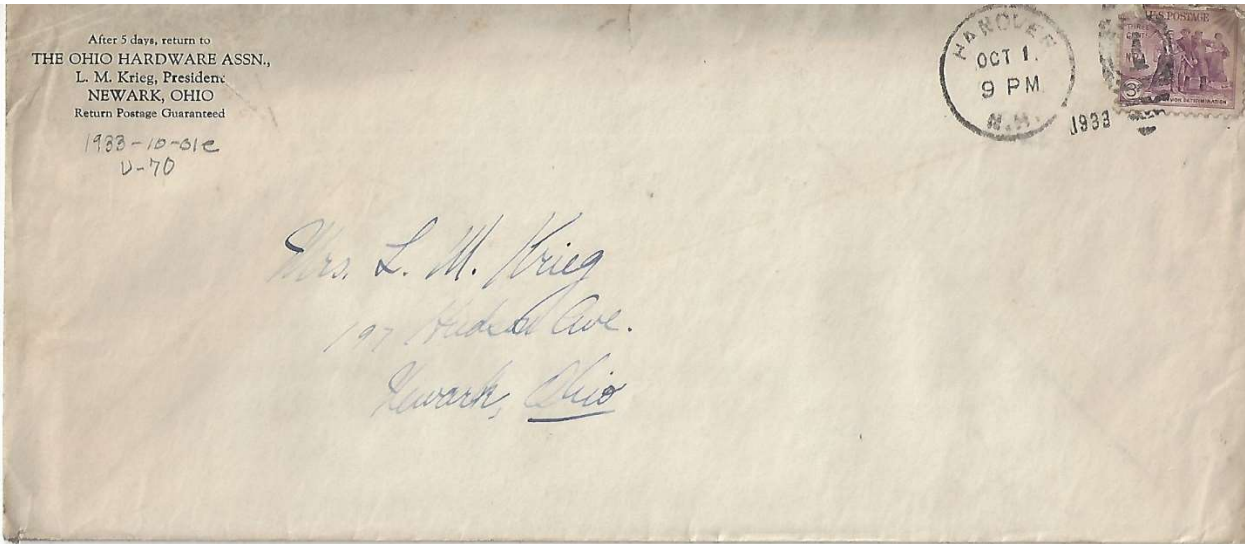 After 5 days, return to
THE OHIO HARDWARE ASSN.,
L. M. Krieg, President
NEWARK, OHIO
Return Postage Guaranteed
1933-10-01e
U-70
HANOVER
OCT 1
9 PM
N.H.
1933
U.S. POSTAGE
THREE
CENTS
3¢
DETERMINATION
Mrs. L. M. Krieg
197 Hudson Ave.
Newark, Ohio